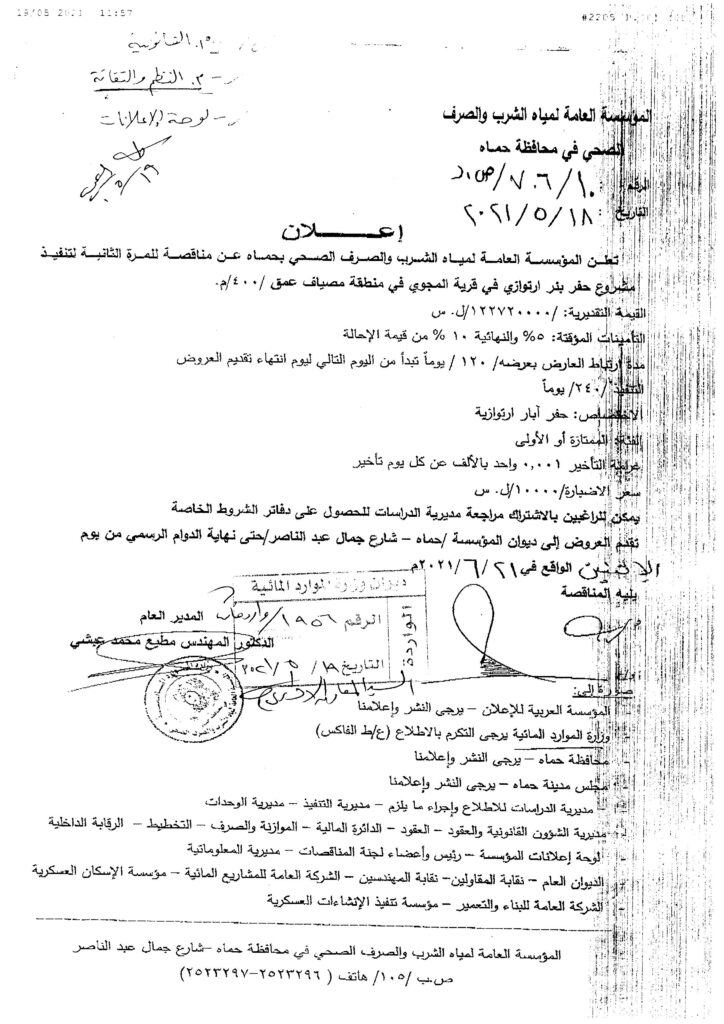 19/05 2021 11:57
#2205
م. القانونية
م. النظم والتقانة
لوحة الإعلانات
١٩/٥
المؤسسة العامة لمياه الشرب والصرف
الصحي في محافظة حماه
الرقم : ٧٠٦/١٠/ص.د
التاريخ : ٢٠٢١/٥/١٨
إعـــلان
تعلن المؤسسة العامة لمياه الشرب والصرف الصحي بحماه عن مناقصة للمرة الثانية لتنفيذ
مشروع حفر بئر ارتوازي في قرية المجوي في منطقة مصياف عمق /٤٠٠/م.
القيمة التقديرية: /١٢٢٧٢٠٠٠٠/ل. س
التأمينات المؤقتة: ٥% والنهائية ١٠ % من قيمة الإحالة
مدة ارتباط العارض بعرضه/ ١٢٠ / يوماً تبدأ من اليوم التالي ليوم انتهاء تقديم العروض
التنفيذ /٢٤٠/ يوماً
الاختصاص: حفر آبار ارتوازية
الفئة: الممتازة أو الأولى
غرامة التأخير ٠,٠٠١ واحد بالألف عن كل يوم تأخير
سعر الاضبارة/١٠٠٠٠/ل. س
يمكن للراغبين بالاشتراك مراجعة مديرية الدراسات للحصول على دفاتر الشروط الخاصة
تقدم العروض إلى ديوان المؤسسة /حماه – شارع جمال عبد الناصر/حتى نهاية الدوام الرسمي من يوم
الاثنين الواقع في ٢٠٢١/٦/٢١م
يليه المناقصة
ديوان وزارة الموارد المائية
الواردة
الرقم ١٩٥٦/وارد
التاريخ ١٩/٥/٢٠٢١
المدير العام
الدكتور المهندس مطيع محمد عبشي
صورة إلى:
- المؤسسة العربية للإعلان – يرجى النشر وإعلامنا
- وزارة الموارد المائية يرجى التكرم بالاطلاع (ع/ط الفاكس)
- محافظة حماه – يرجى النشر وإعلامنا
- مجلس مدينة حماه – يرجى النشر وإعلامنا
- مديرية الدراسات للاطلاع وإجراء ما يلزم – مديرية التنفيذ – مديرية الوحدات
- مديرية الشؤون القانونية والعقود – العقود – الدائرة المالية – الموازنة والصرف – التخطيط – الرقابة الداخلية
- لوحة إعلانات المؤسسة – رئيس وأعضاء لجنة المناقصات – مديرية المعلوماتية
- الديوان العام – نقابة المقاولين- نقابة المهندسين – الشركة العامة للمشاريع المائية – مؤسسة الإسكان العسكرية
- الشركة العامة للبناء والتعمير – مؤسسة تنفيذ الإنشاءات العسكرية
المؤسسة العامة لمياه الشرب والصرف الصحي في محافظة حماه –شارع جمال عبد الناصر
ص.ب /١٠٥/ هاتف ( ٢٥٢٣٢٩٦-٢٥٢٣٢٩٧)